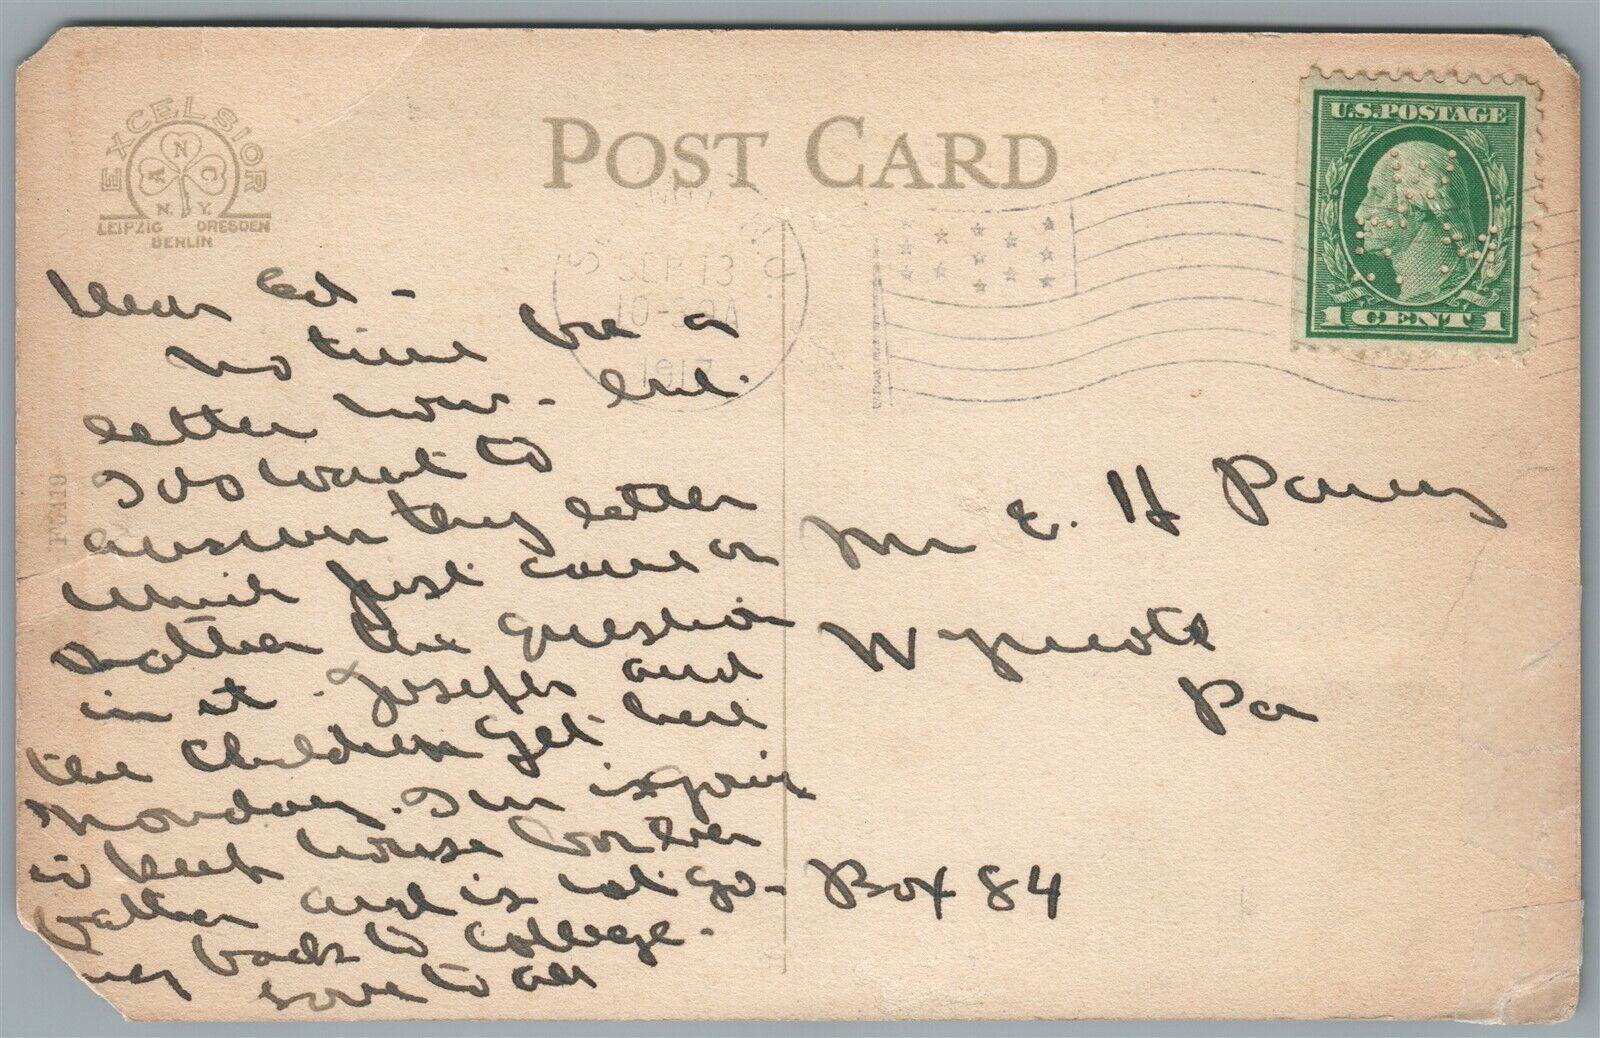 EXCELSIOR
A N C
N. Y.
LEIPZIG DRESDEN
BERLIN
POST CARD
U.S. POSTAGE
1 CENT 1
SEP 13
10-30A
191
P5419
Dear Ed -
no time for a
letter now - but
I do want to
answer thy letter
which just came or
rather the question
in it. Joseph and
the children get here
Monday. I m is going
to keep house for her
father and is not go-
ing back to college.
Love to all
Mr E. H Parry
Wyncote
Pa
Box 84